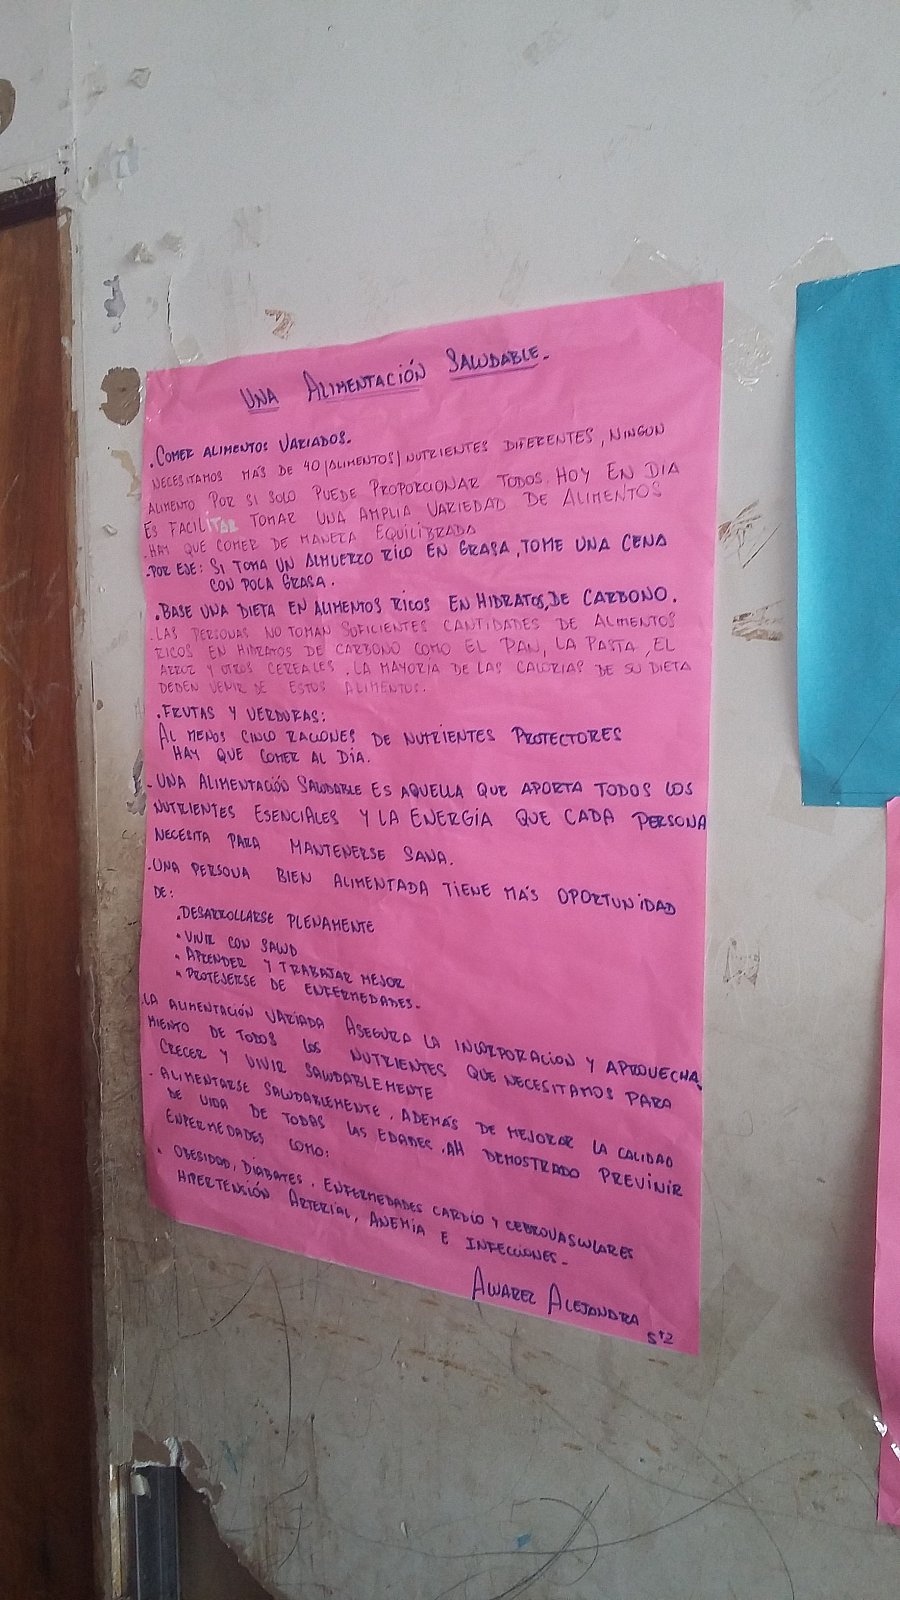 UNA ALIMENTACIÓN SALUDABLE.
. COMER ALIMENTOS VARIADOS.
NECESITAMOS MÁS DE 40 (ALIMENTOS) NUTRIENTES DIFERENTES, NINGUN
ALIMENTO POR SI SOLO PUEDE PROPORCIONAR TODOS. HOY EN DIA
ES FACILITAR TOMAR UNA AMPLIA VARIEDAD DE ALIMENTOS
. HAY QUE COMER DE MANERA EQUILIBRADA
. POR EJE: SI TOMA UN ALMUERZO RICO EN GRASA, TOME UNA CENA
CON POCA GRASA.
. BASE UNA DIETA EN ALIMENTOS RICOS EN HIDRATOS, DE CARBONO.
. LAS PERSONAS NO TOMAN SUFICIENTES CANTIDADES DE ALIMENTOS
RICOS EN HIDRATOS DE CARBONO COMO EL PAN, LA PASTA, EL
ARROZ Y OTROS CEREALES. LA MAYORÍA DE LAS CALORIAS DE SU DIETA
DEBEN VENIR DE ESTOS ALIMENTOS.
. FRUTAS Y VERDURAS:
AL MENOS CINCO RACIONES DE NUTRIENTES PROTECTORES
HAY QUE COMER AL DÍA.
. UNA ALIMENTACIÓN SALUDABLE ES AQUELLA QUE APORTA TODOS LOS
NUTRIENTES ESENCIALES Y LA ENERGÍA QUE CADA PERSONA
NECESITA PARA MANTENERSE SANA.
. UNA PERSONA BIEN ALIMENTADA TIENE MÁS OPORTUNIDAD
DE:
. DESARROLLARSE PLENAMENTE
• VIVIR CON SALUD
• APRENDER Y TRABAJAR MEJOR
• PROTEJERSE DE ENFERMEDADES.
. LA ALIMENTACIÓN VARIADA ASEGURA LA INCORPORACION Y APROVECHA_
MIENTO DE TODOS LOS NUTRIENTES QUE NECESITAMOS PARA
CRECER Y VIVIR SALUDABLEMENTE
. ALIMENTARSE SALUDABLEMENTE, ADEMÁS DE MEJORAR LA CALIDAD
DE VIDA DE TODAS LAS EDADES, AH DEMOSTRADO PREVINIR
ENFERMEDADES COMO:
• OBESIDAD, DIABATES, ENFERMEDADES CARDIO Y CEBROVASCULARES
HIPERTENSIÓN ARTERIAL, ANEMIA E INFECCIONES.
ALVAREZ ALEJANDRA
5°2